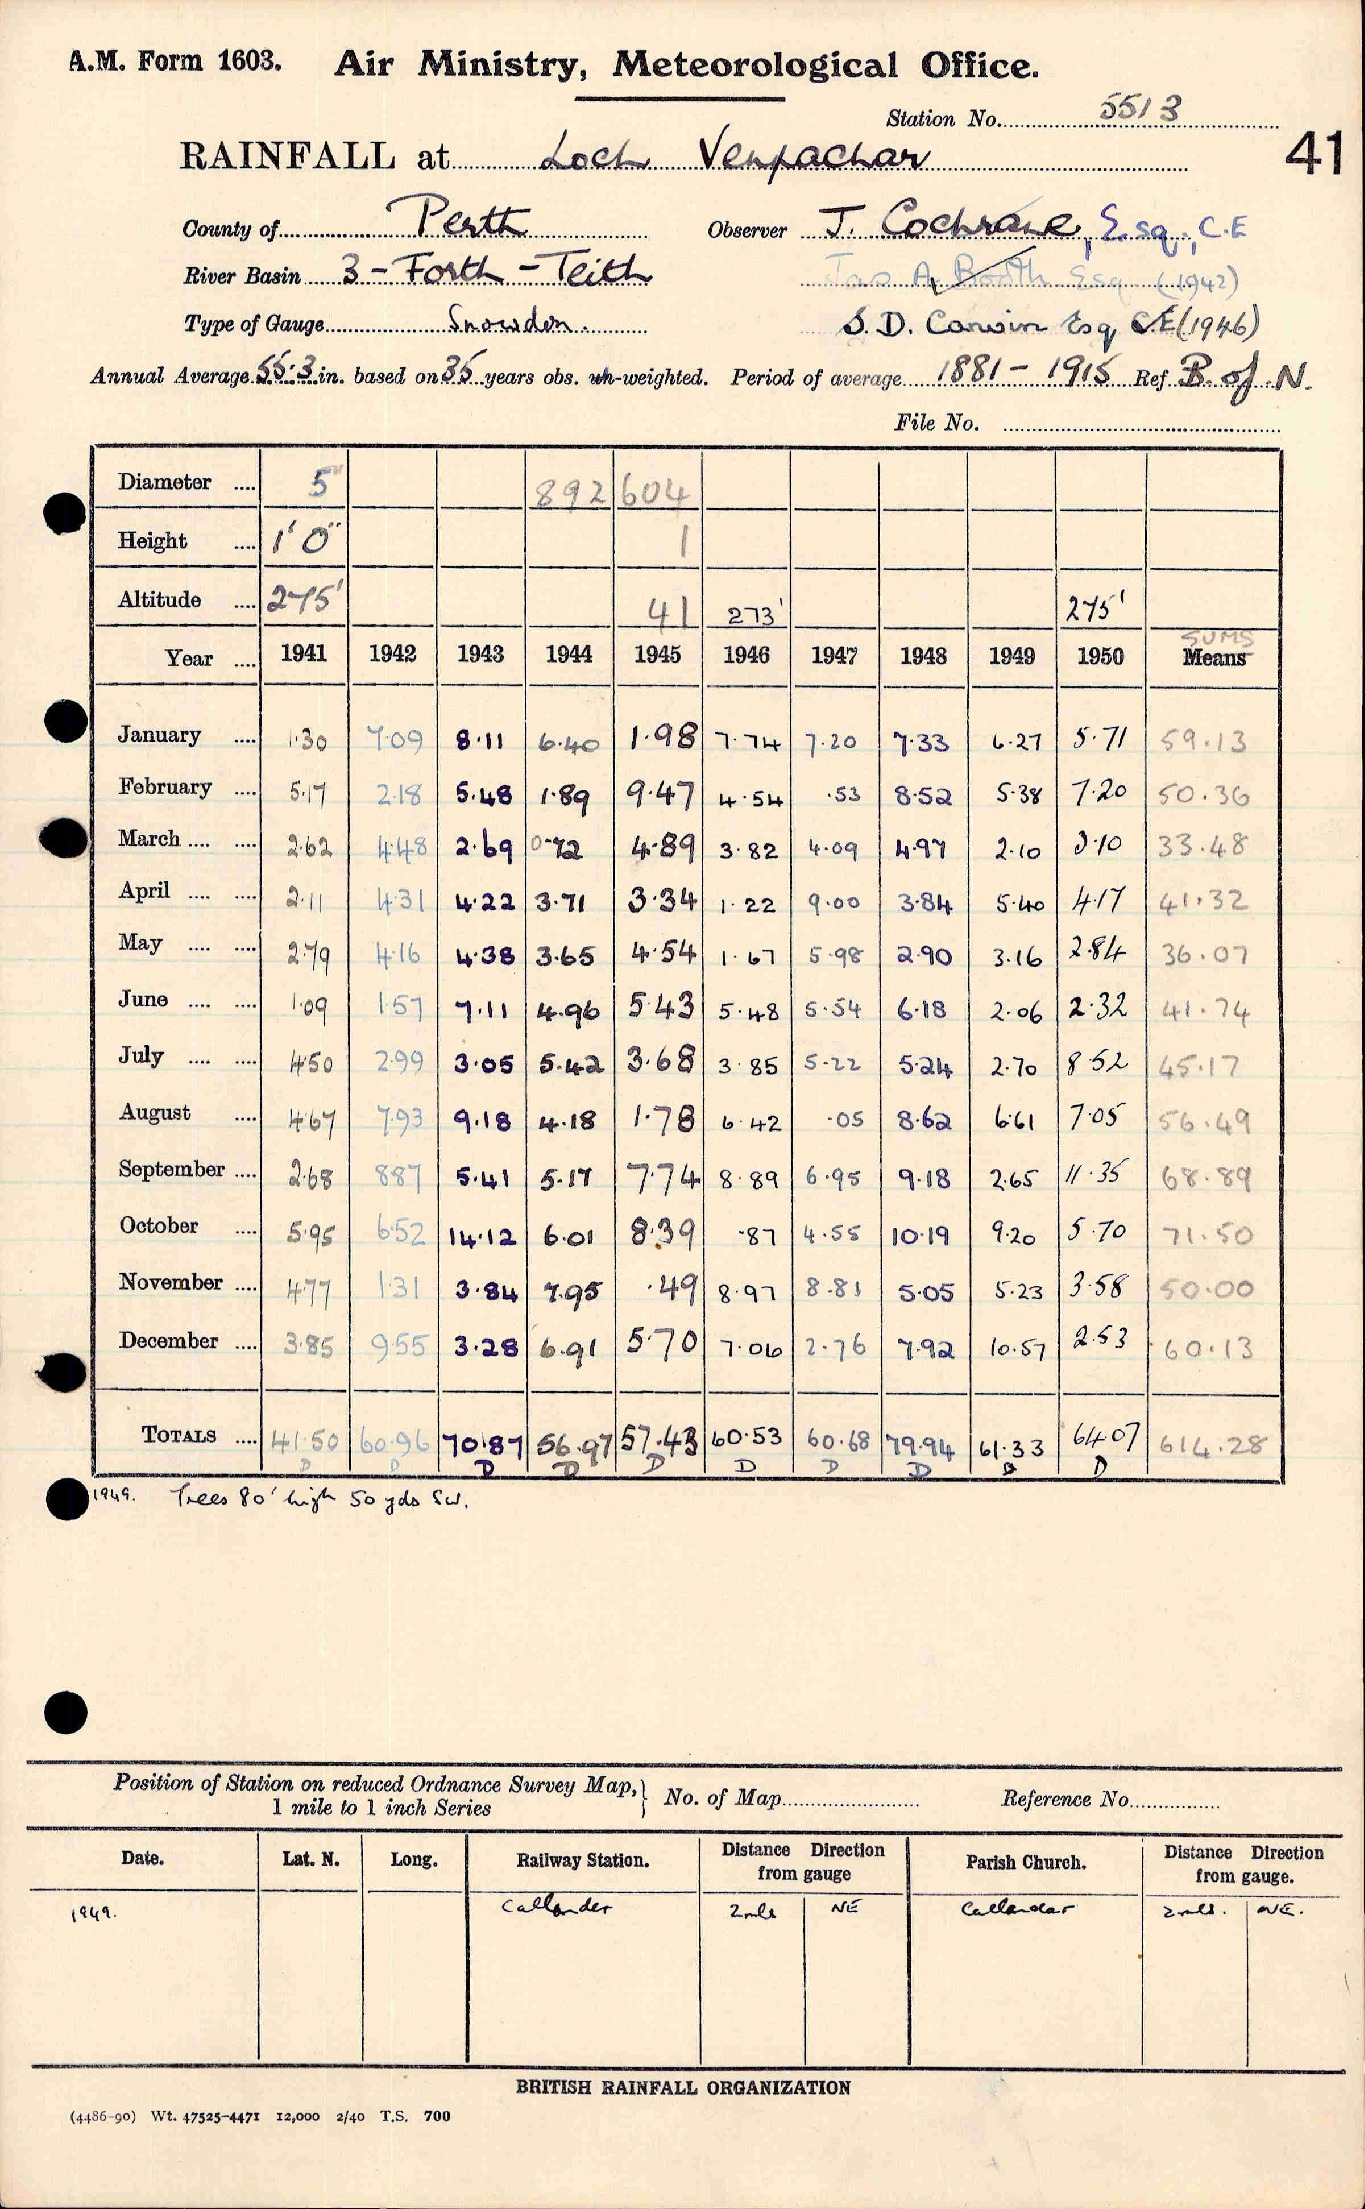 A.M. Form 1603. Air Ministry, Meteorological Office.
Station No. 5513
41
RAINFALL at Loch Venachar
County of Perth Observer J. Cochrane, Esq., C.E
River Basin 3 - Forth - Teith Jas A. Booth Esq (1942)
Type of Gauge Snowdon. S. D. Canvin Esq C.E (1946)
Annual Average 55.3 in. based on 35 years obs. un-weighted. Period of average 1881 - 1915 Ref B. of N.
File No.
Diameter .... 5" 892604
Height .... 1' 0" 1
Altitude .... 275' 41 273' 275'
SUMS
Year .... 1941 1942 1943 1944 1945 1946 1947 1948 1949 1950 Means
January .... 1.30 7.09 8.11 6.40 1.98 7.74 7.20 7.33 6.27 5.71 59.13
February .... 5.17 2.18 5.48 1.89 9.47 4.54 .53 8.52 5.38 7.20 50.36
March .... .... 2.62 4.48 2.69 0.72 4.89 3.82 4.09 4.97 2.10 3.10 33.48
April .... .... 2.11 4.31 4.22 3.71 3.34 1.22 9.00 3.84 5.40 4.17 41.32
May .... .... 2.79 4.16 4.38 3.65 4.54 1.67 5.98 2.90 3.16 2.84 36.07
June .... .... 1.09 1.57 7.11 4.96 5.43 5.48 5.54 6.18 2.06 2.32 41.74
July .... .... 4.50 2.99 3.05 5.42 3.68 3.85 5.22 5.24 2.70 8.52 45.17
August .... 4.67 7.93 9.18 4.18 1.78 6.42 .05 8.62 6.61 7.05 56.49
September .... 2.68 8.87 5.41 5.17 7.74 8.89 6.95 9.18 2.65 11.35 68.89
October .... 5.95 6.52 14.12 6.01 8.39 .87 4.55 10.19 9.20 5.70 71.50
November .... 4.77 1.31 3.84 7.95 .49 8.97 8.81 5.05 5.23 3.58 50.00
December .... 3.85 9.55 3.28 6.91 5.70 7.06 2.76 7.92 10.57 2.53 60.13
TOTALS .... 41.50 60.96 70.87 56.97 57.43 60.53 60.68 79.94 61.33 64.07 614.28
D D D D D D D D D D
1949. Trees 80' high 50 yds SW.
Position of Station on reduced Ordnance Survey Map, 1 mile to 1 inch Series No. of Map Reference No.
Date. Lat. N. Long. Railway Station. Distance Direction from gauge Parish Church. Distance Direction from gauge.
1949. Callander 2 mls NE Callander 2 mls. NE.
BRITISH RAINFALL ORGANIZATION
(4486-90) Wt. 47525-4471 12,000 2/40 T.S. 700